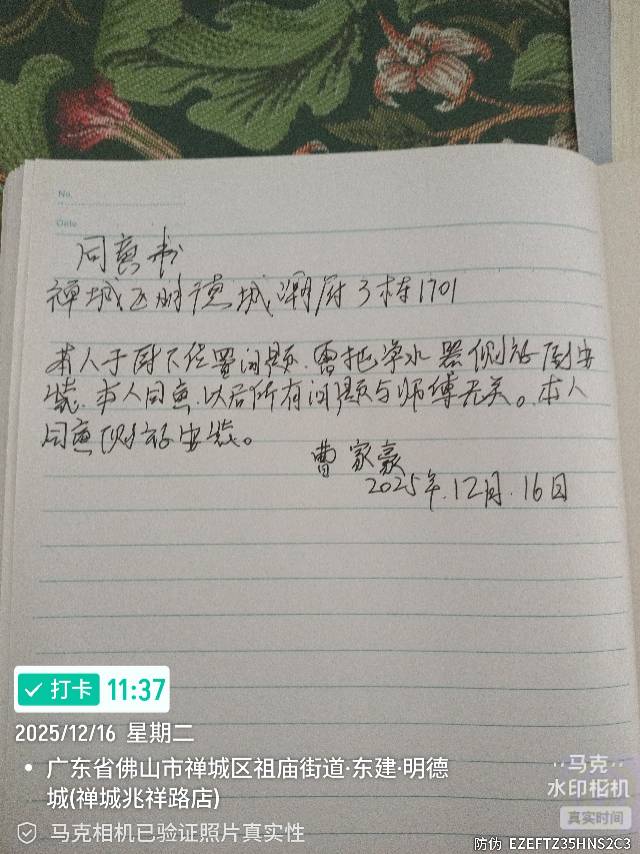 No.
Date
同意书
禅城区明德城潮府3栋1701
本人于厨下位置问题,需把净水器侧放倒安
装,本人同意,以后所有问题与师傅无关。本人
同意侧放安装。
曹家豪
2025年.12月.16日
打卡 11:37
2025/12/16 星期二
广东省佛山市禅城区祖庙街道·东建·明德
城(禅城兆祥路店)
马克相机已验证照片真实性
马克
水印相机
真实时间
防伪 EZEFTZ35HNS2C3